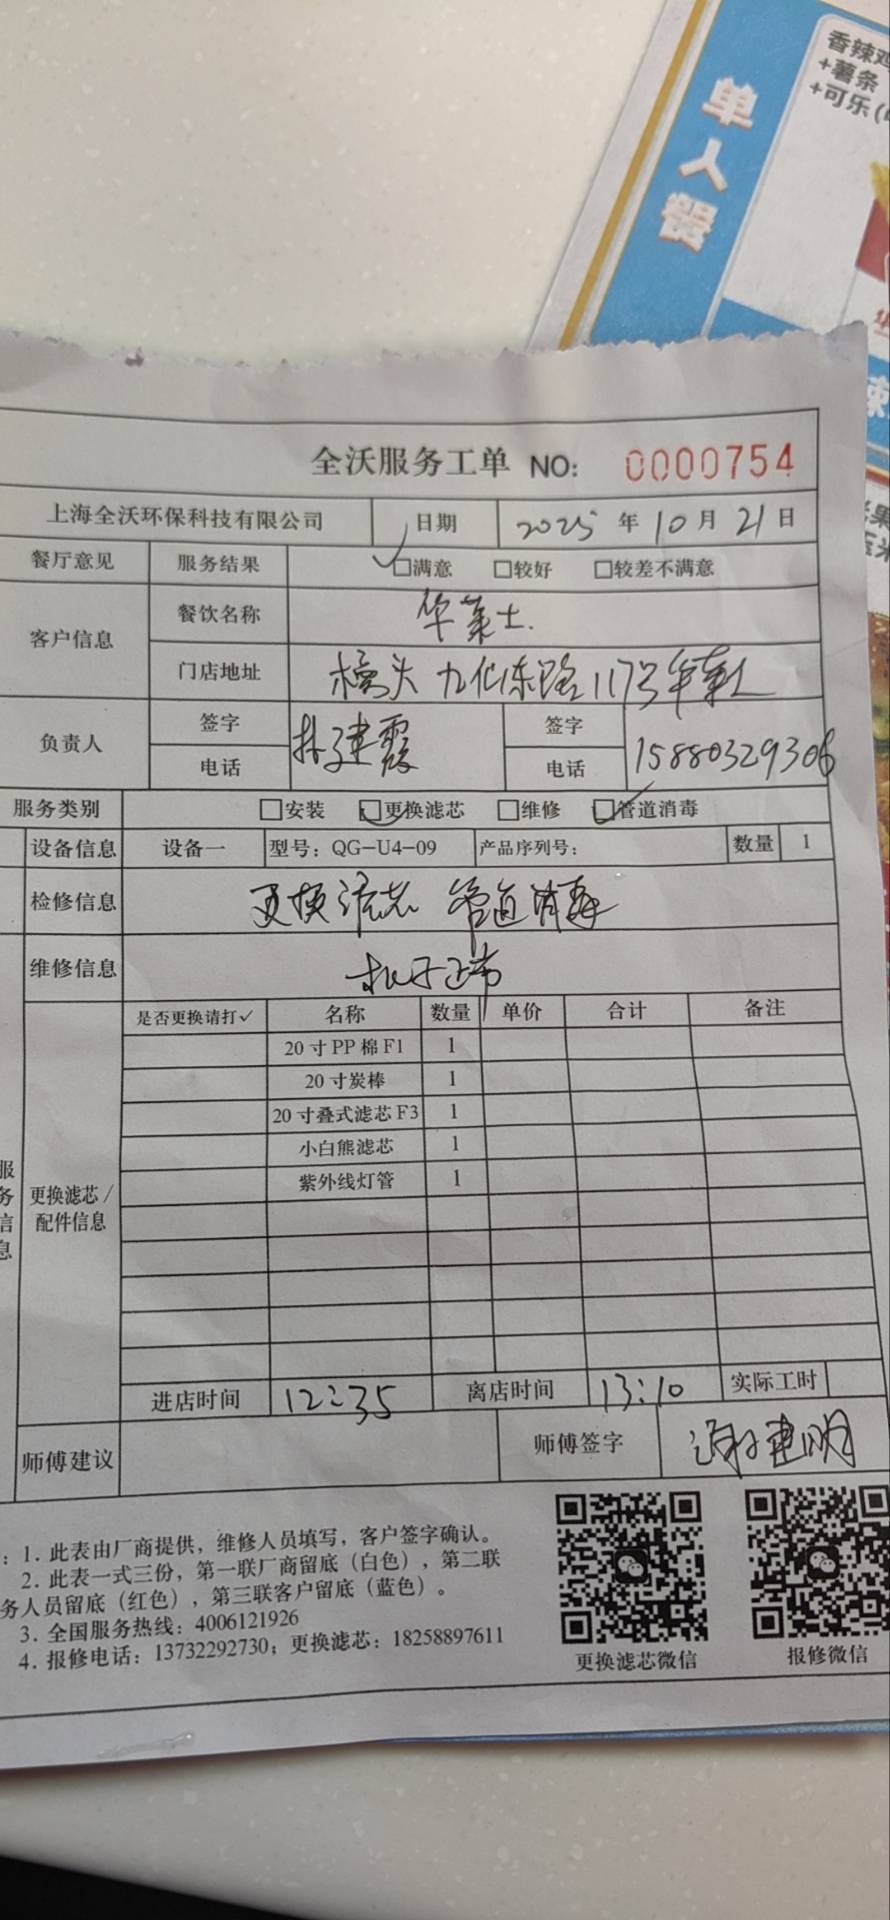 单人餐
香辣鸡
+薯条
+可乐
全沃服务工单 NO: 0000754
上海全沃环保科技有限公司 日期 2025 年 10 月 21 日
餐厅意见 服务结果 ✓□满意 □较好 □较差不满意
客户信息 餐饮名称 华莱士.
门店地址 桥头 九仙东路117号华莱士
负责人 签字 林建霞 签字
电话 电话 15880329306
服务类别 □安装 ☑更换滤芯 □维修 ☑管道消毒
设备信息 设备一 型号: QG-U4-09 产品序列号: 数量 1
检修信息 更换滤芯 管道消毒
维修信息 机子正常
服务信息 更换滤芯/配件信息
是否更换请打✓ 名称 数量 单价 合计 备注
20寸PP棉F1 1
20寸炭棒 1
20寸叠式滤芯F3 1
小白熊滤芯 1
紫外线灯管 1
进店时间 12:35 离店时间 13:10 实际工时
师傅建议 师傅签字 谢建明
: 1. 此表由厂商提供，维修人员填写，客户签字确认。
2. 此表一式三份，第一联厂商留底（白色），第二联
务人员留底（红色），第三联客户留底（蓝色）。
3. 全国服务热线：4006121926
4. 报修电话：13732292730；更换滤芯：18258897611
更换滤芯微信 报修微信